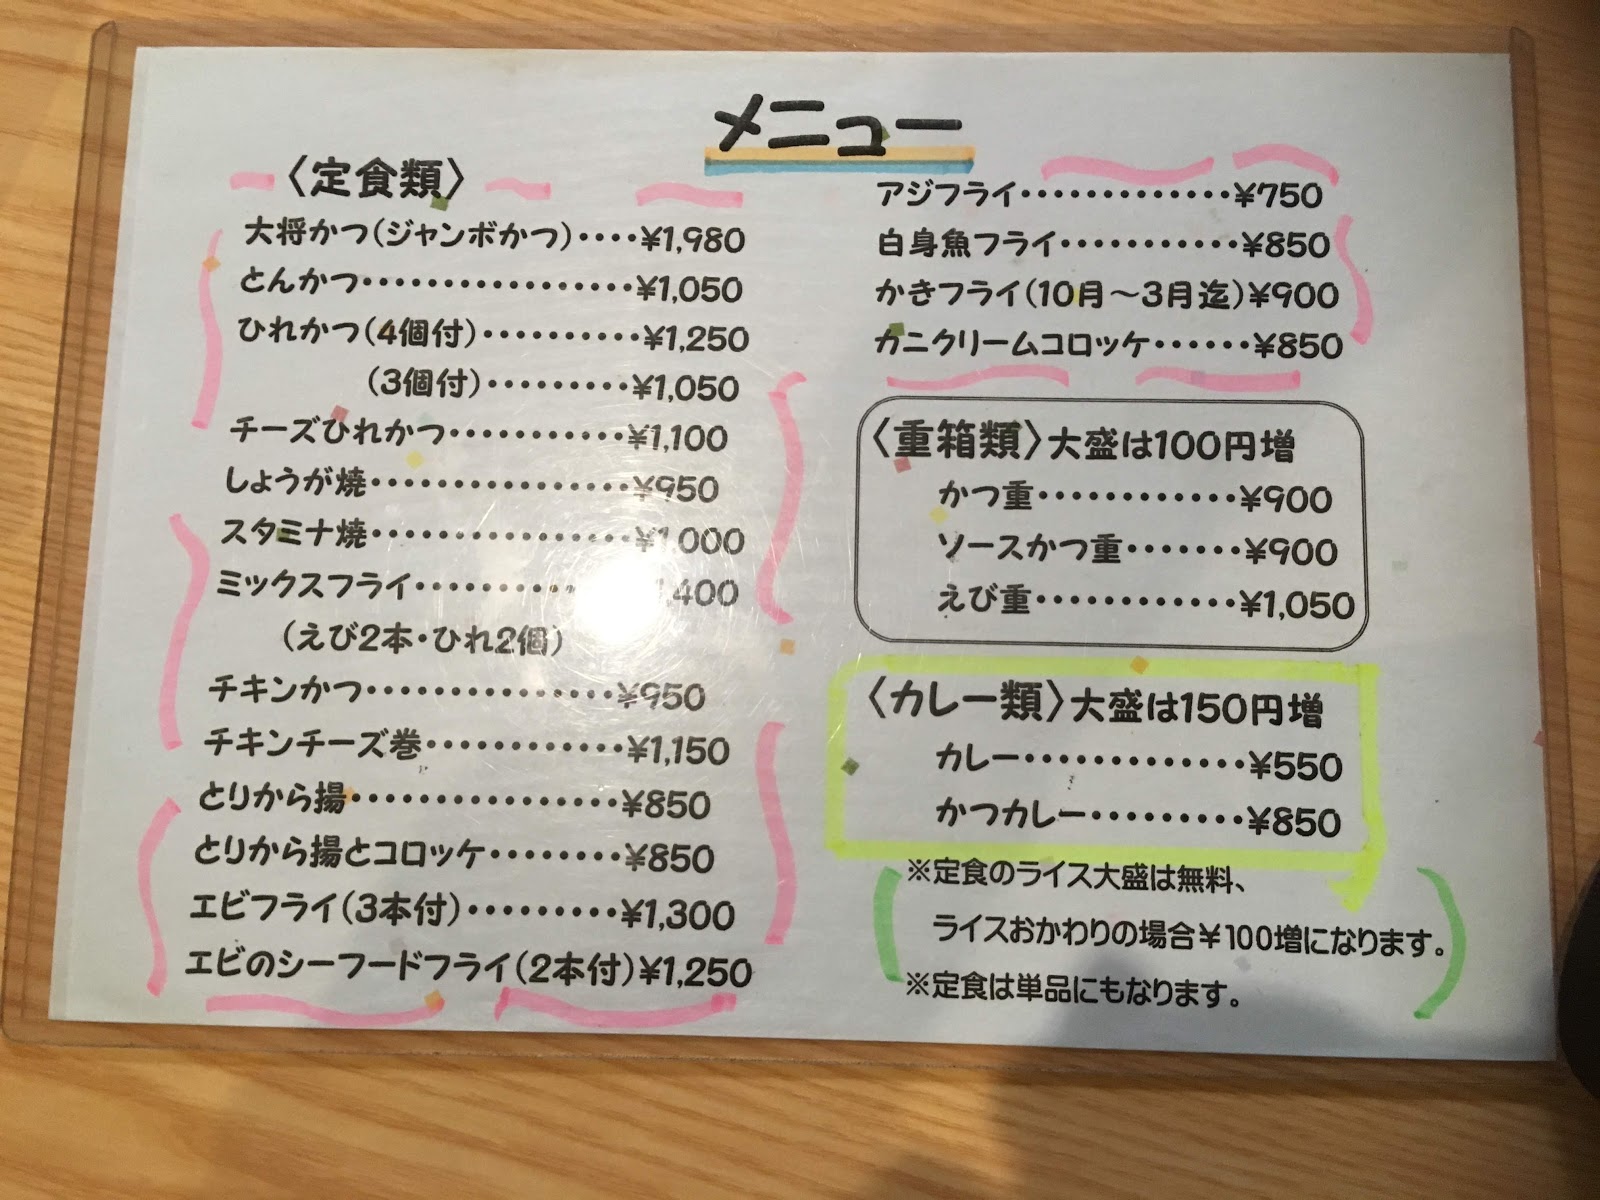 メニュー
〈定食類〉
大将かつ(ジャンボかつ)････¥1,980
とんかつ･････････････････¥1,050
ひれかつ(4個付)･･････････¥1,250
(3個付)･････････¥1,050
チーズひれかつ･･･････････¥1,100
しょうが焼････････････････¥950
スタミナ焼････････････････¥1,000
ミックスフライ･･････････ ,400
(えび2本・ひれ2個)
チキンかつ････････････････¥950
チキンチーズ巻････････････¥1,150
とりから揚････････････････¥850
とりから揚とコロッケ････････¥850
エビフライ(3本付)･････････¥1,300
エビのシーフードフライ(2本付)¥1,250
アジフライ･････････････¥750
白身魚フライ･･･････････¥850
かきフライ(10月～3月迄)¥900
カニクリームコロッケ･･････¥850
〈重箱類〉大盛は100円増
かつ重････････････¥900
ソースかつ重･･･････¥900
えび重････････････¥1,050
〈カレー類〉大盛は150円増
カレー･････････････¥550
かつカレー･････････¥850
※定食のライス大盛は無料、
ライスおかわりの場合¥100増になります。
※定食は単品にもなります。